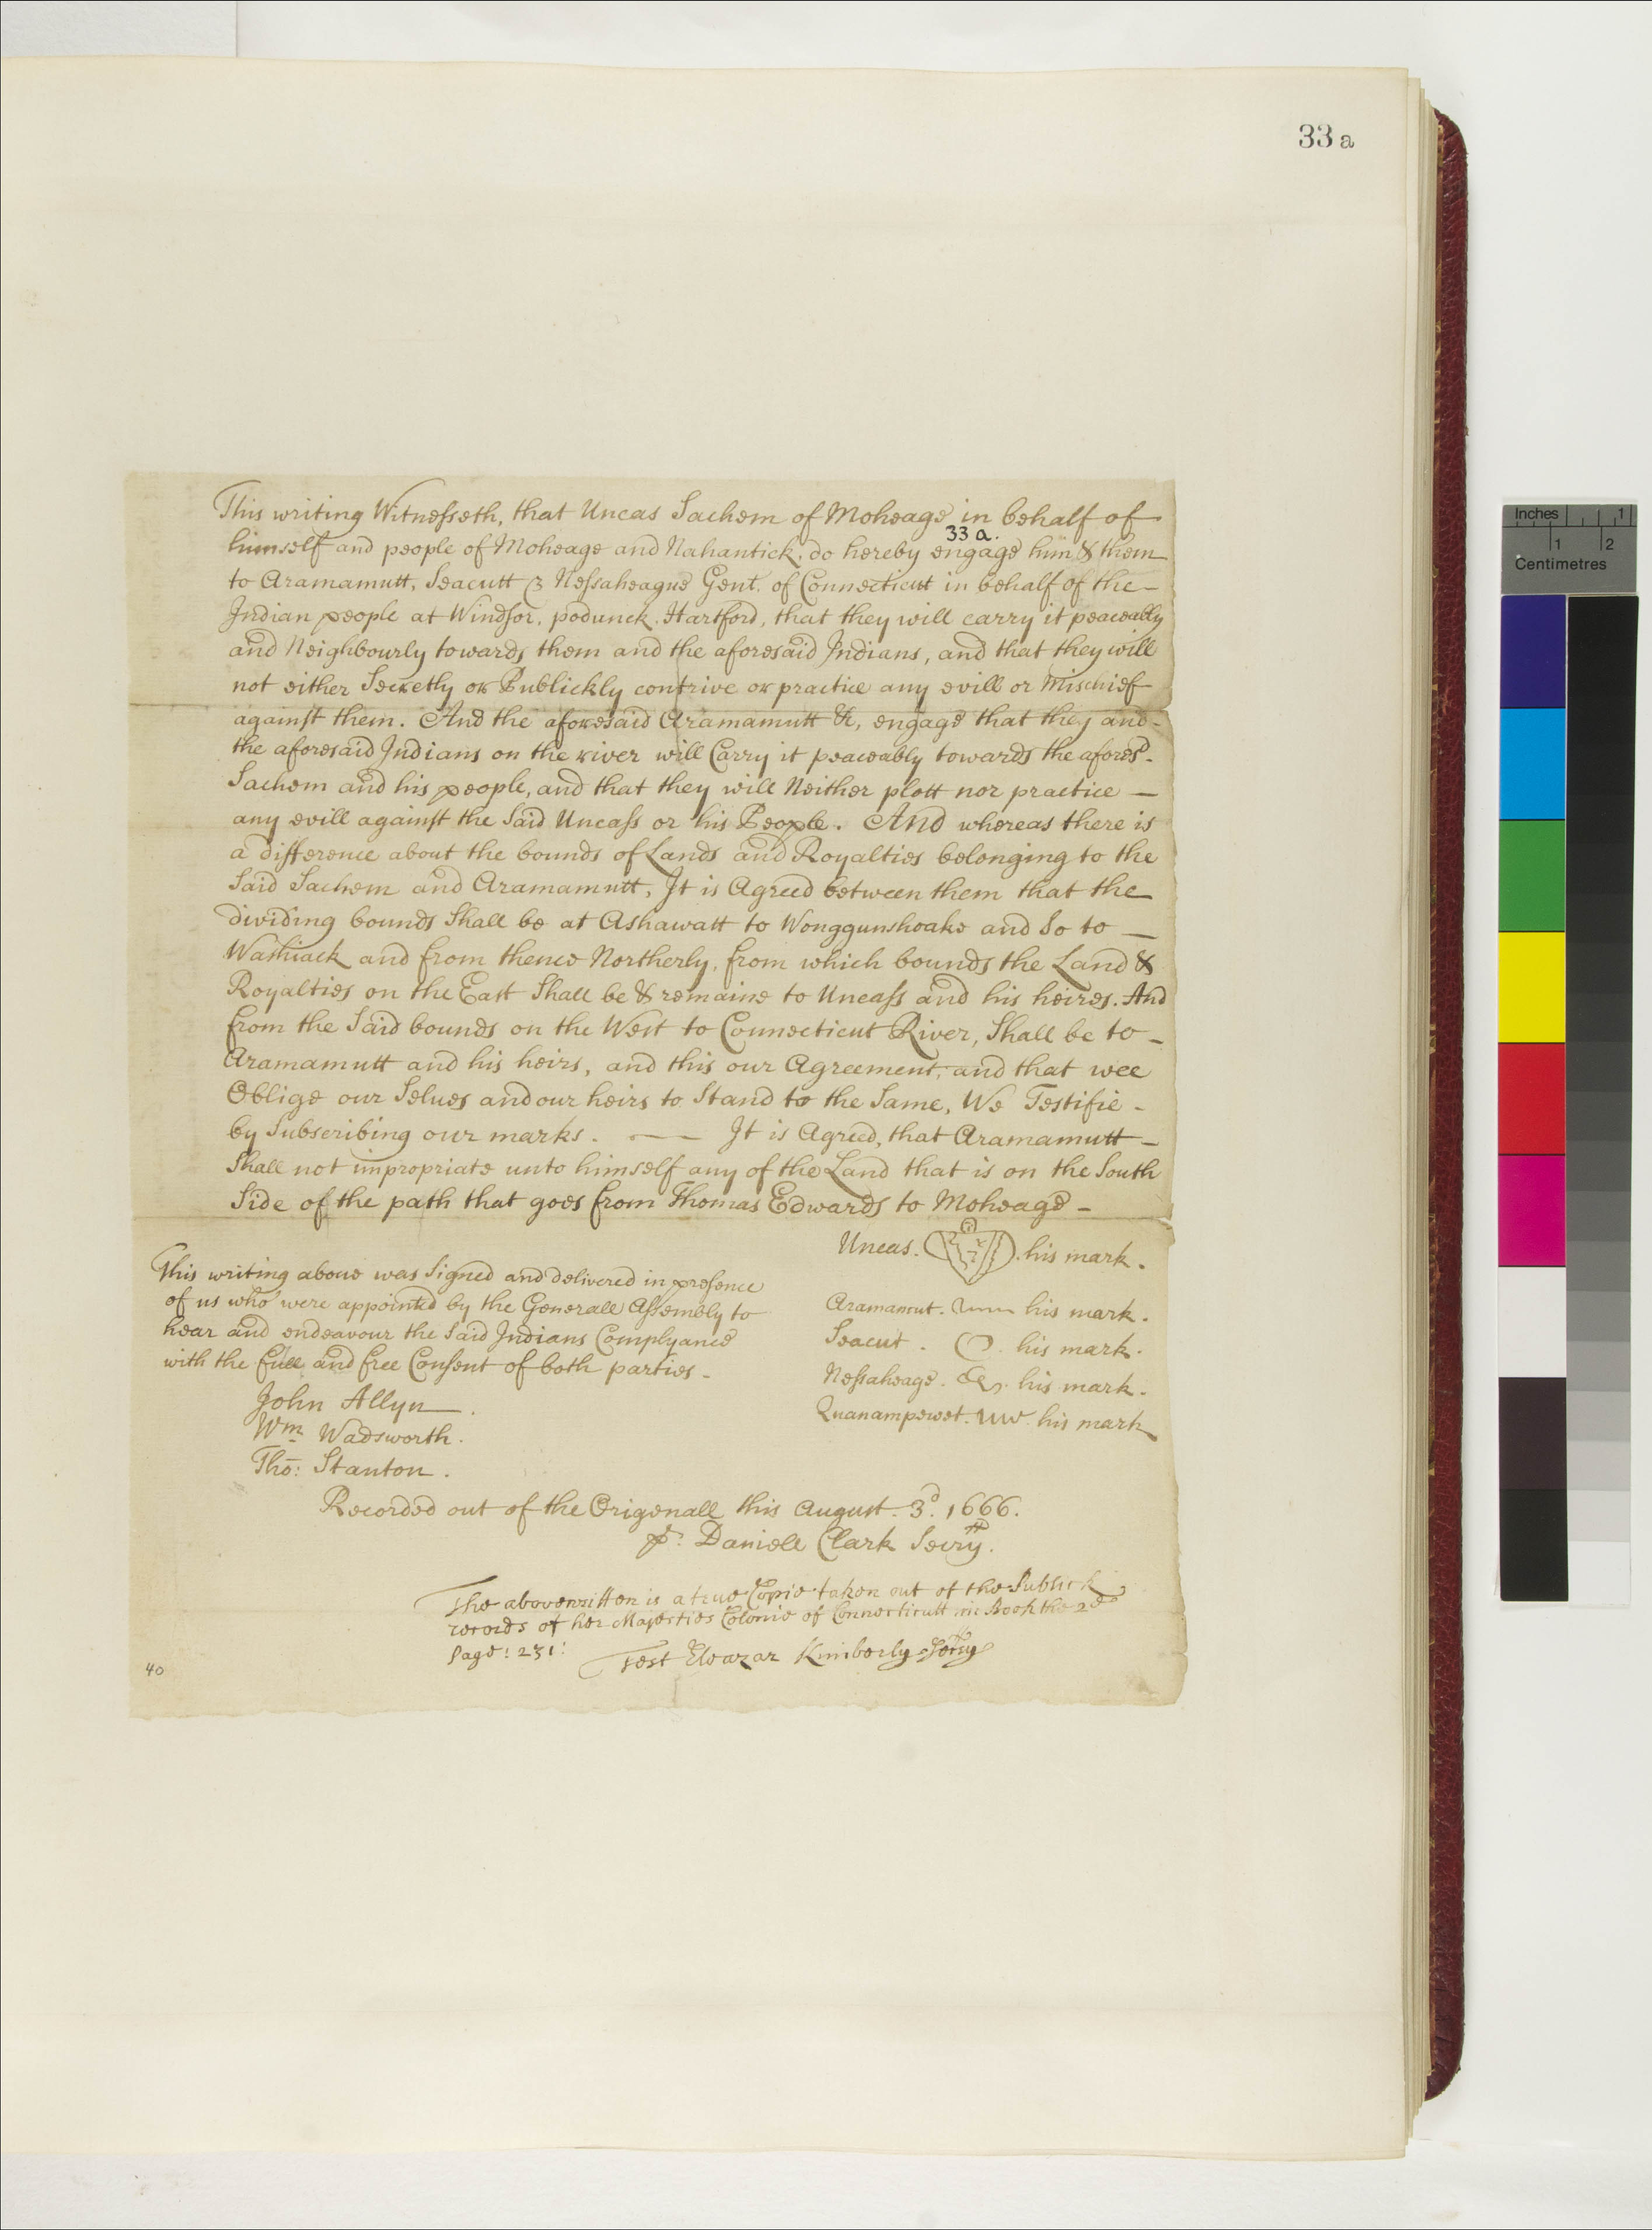 33 a
This writing Witnesseth, that Uncas Sachem of Moheage in behalf of
33 a.
himself and people of Moheage and Nahantick, do hereby engage him & them
to Aramamutt, Seacutt & Nessaheague Gent. of Connecticut in behalf of the
Indian people at Windsor, podunck, Hartford, that they will carry it peaceably
and Neighbourly towards them and the aforesaid Indians, and that they will
not either Secretly or Publickly contrive or practice any evill or Mischief
against them. And the aforesaid Aramamutt &c, engage that they and
the aforesaid Indians on the river will Carry it peaceably towards the aforesd.
Sachem and his people, and that they will Neither plott nor practice —
any evill against the Said Uncass or his People. And whereas there is
a difference about the bounds of Lands and Royalties belonging to the
Said Sachem and Aramamutt, It is Agreed between them that the
dividing bounds Shall be at Ashawatt to Wonggunshoake and So to —
Washiack and from thence Northerly, from which bounds the Land &
Royalties on the East Shall be & remaine to Uncass and his heires. And
from the Said bounds on the West to Connecticut River, Shall be to -
Aramamutt and his heirs, and this our Agreement, and that wee
Oblige our Selves and our heirs to Stand to the Same, We Testifie -
by Subscribing our marks. — It is Agreed, that Aramamutt -
Shall not impropriate unto himself any of the Land that is on the South
Side of the path that goes from Thomas Edwards to Moheage -
Uncas. his mark.
This writing above was Signed and delivered in presence
of us who were appointed by the Generall Assembly to
hear and endeavour the Said Indians Complyance
with the full and free Consent of both parties -
Aramamut. his mark.
Seacut. his mark.
Nessaheage. his mark.
Quanampewet. his mark
John Allyn.
Wm Wadsworth.
Tho: Stanton.
Recorded out of the Origenall this August 3d. 1666.
pr. Daniell Clark Secry.
The abovewritten is a true Copie taken out of the Publick
records of her Majesties Colonie of Connecticutt in Book the 2nd
Page: 231:
Test Eleazar Kimberly Secry
40
Inches 1
1 2
Centimetres